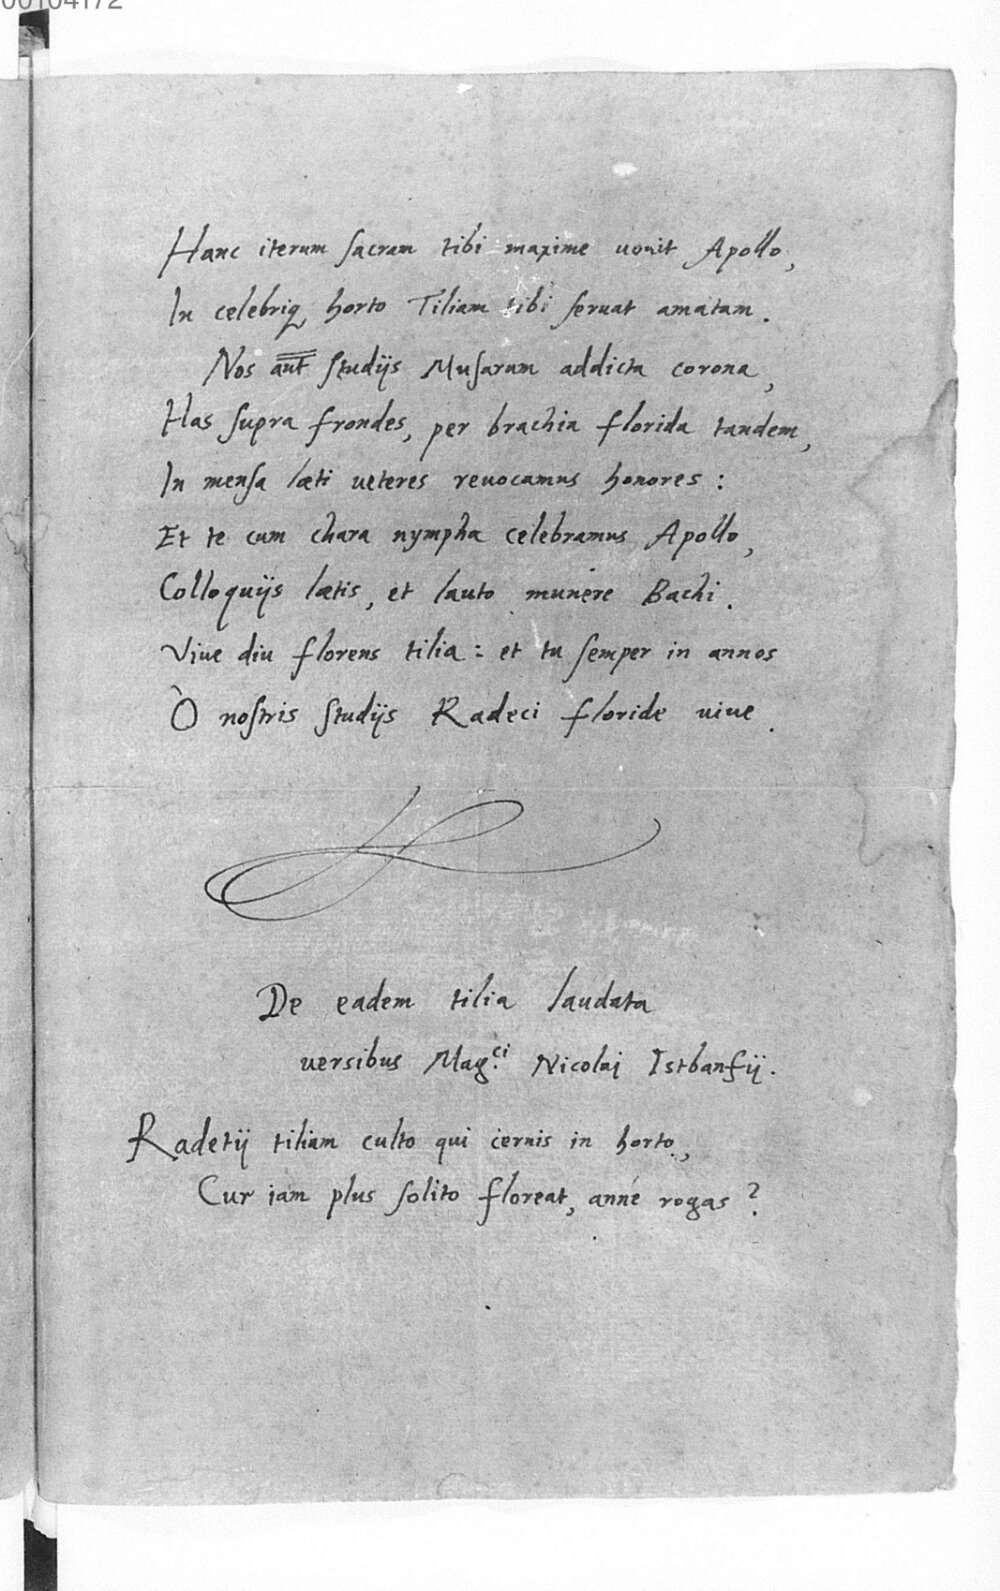 00104172
Hanc iterum sacram tibi maxime uouit Apollo,
In celebriq, horto Tiliam tibi seruat amatam.
Nos aut studijs Musarum addicta corona,
Has supra frondes, per brachia florida tandem,
In mensa læti ueteres reuocamus honores:
Et te cum chara nympha celebramus Apollo,
Colloquijs lætis, et lauto munere Bachi.
Viue diu florens tilia: et tu semper in annos
Ò nostris studijs Radeci floride uiue.
De eadem tilia laudata
uersibus Mag.ci Nicolaj Istbanfij.
Radetij tiliam culto qui cernis in horto,
Cur iam plus solito floreat, anné rogas?